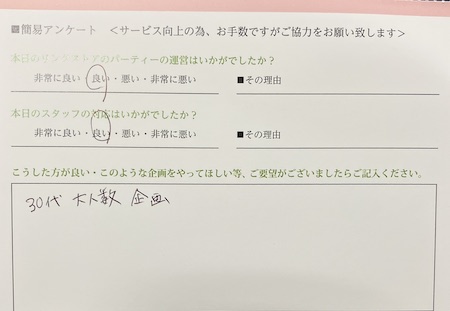 ■簡易アンケート ＜サービス向上の為、お手数ですがご協力をお願い致します＞
本日のリンクストアのパーティーの運営はいかがでしたか？
非常に良い・良い・悪い・非常に悪い ■その理由
本日のスタッフの対応はいかがでしたか？
非常に良い・良い・悪い・非常に悪い ■その理由
こうした方が良い・このような企画をやってほしい等、ご要望がございましたらご記入ください。
30代 大人数 企画